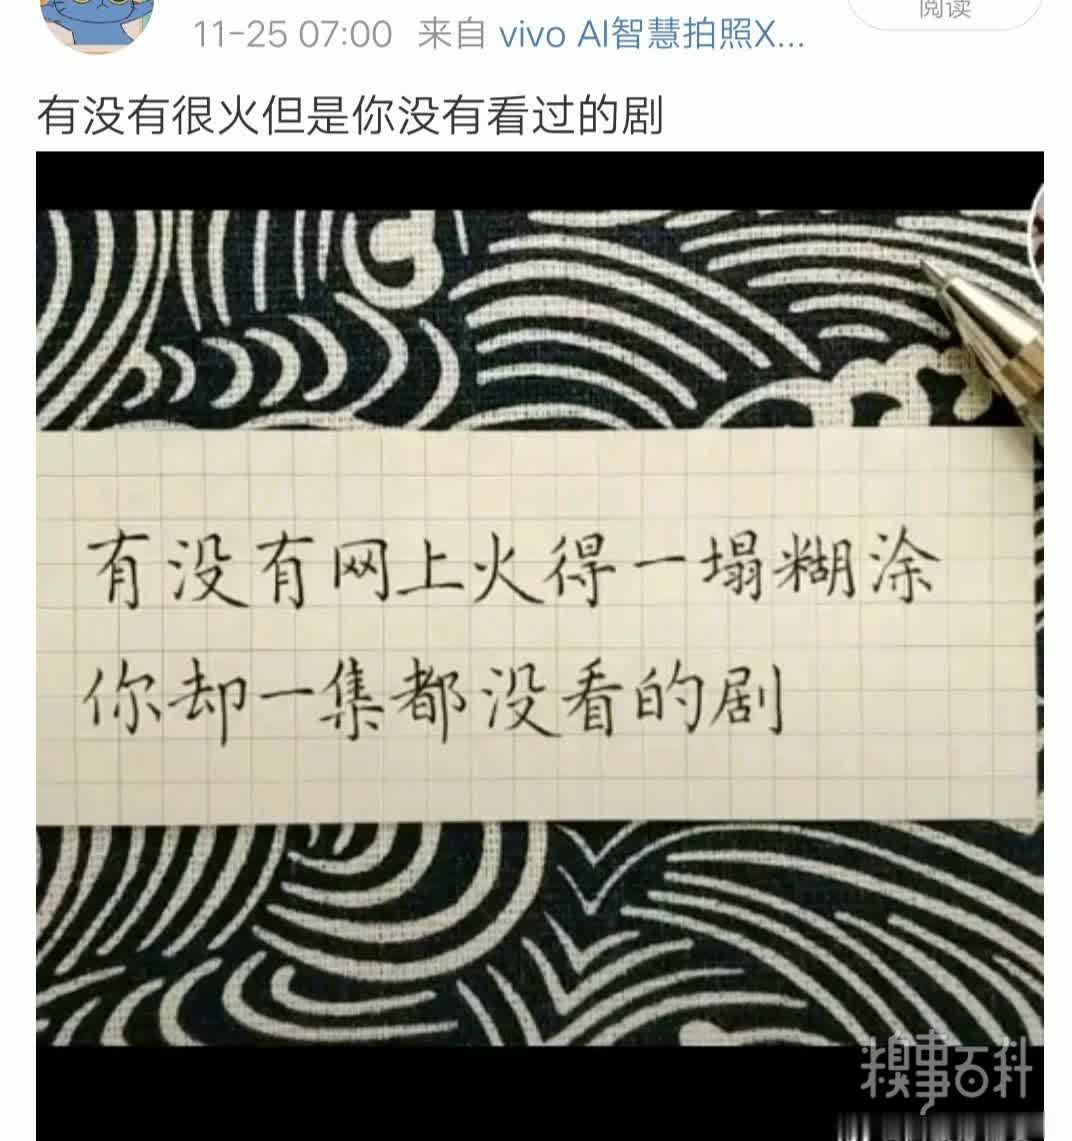 阅读
11-25 07:00 来自 vivo AI智慧拍照X...
有没有很火但是你没有看过的剧
有没有网上火得一塌糊涂
你却一集都没看的剧
糗事百科